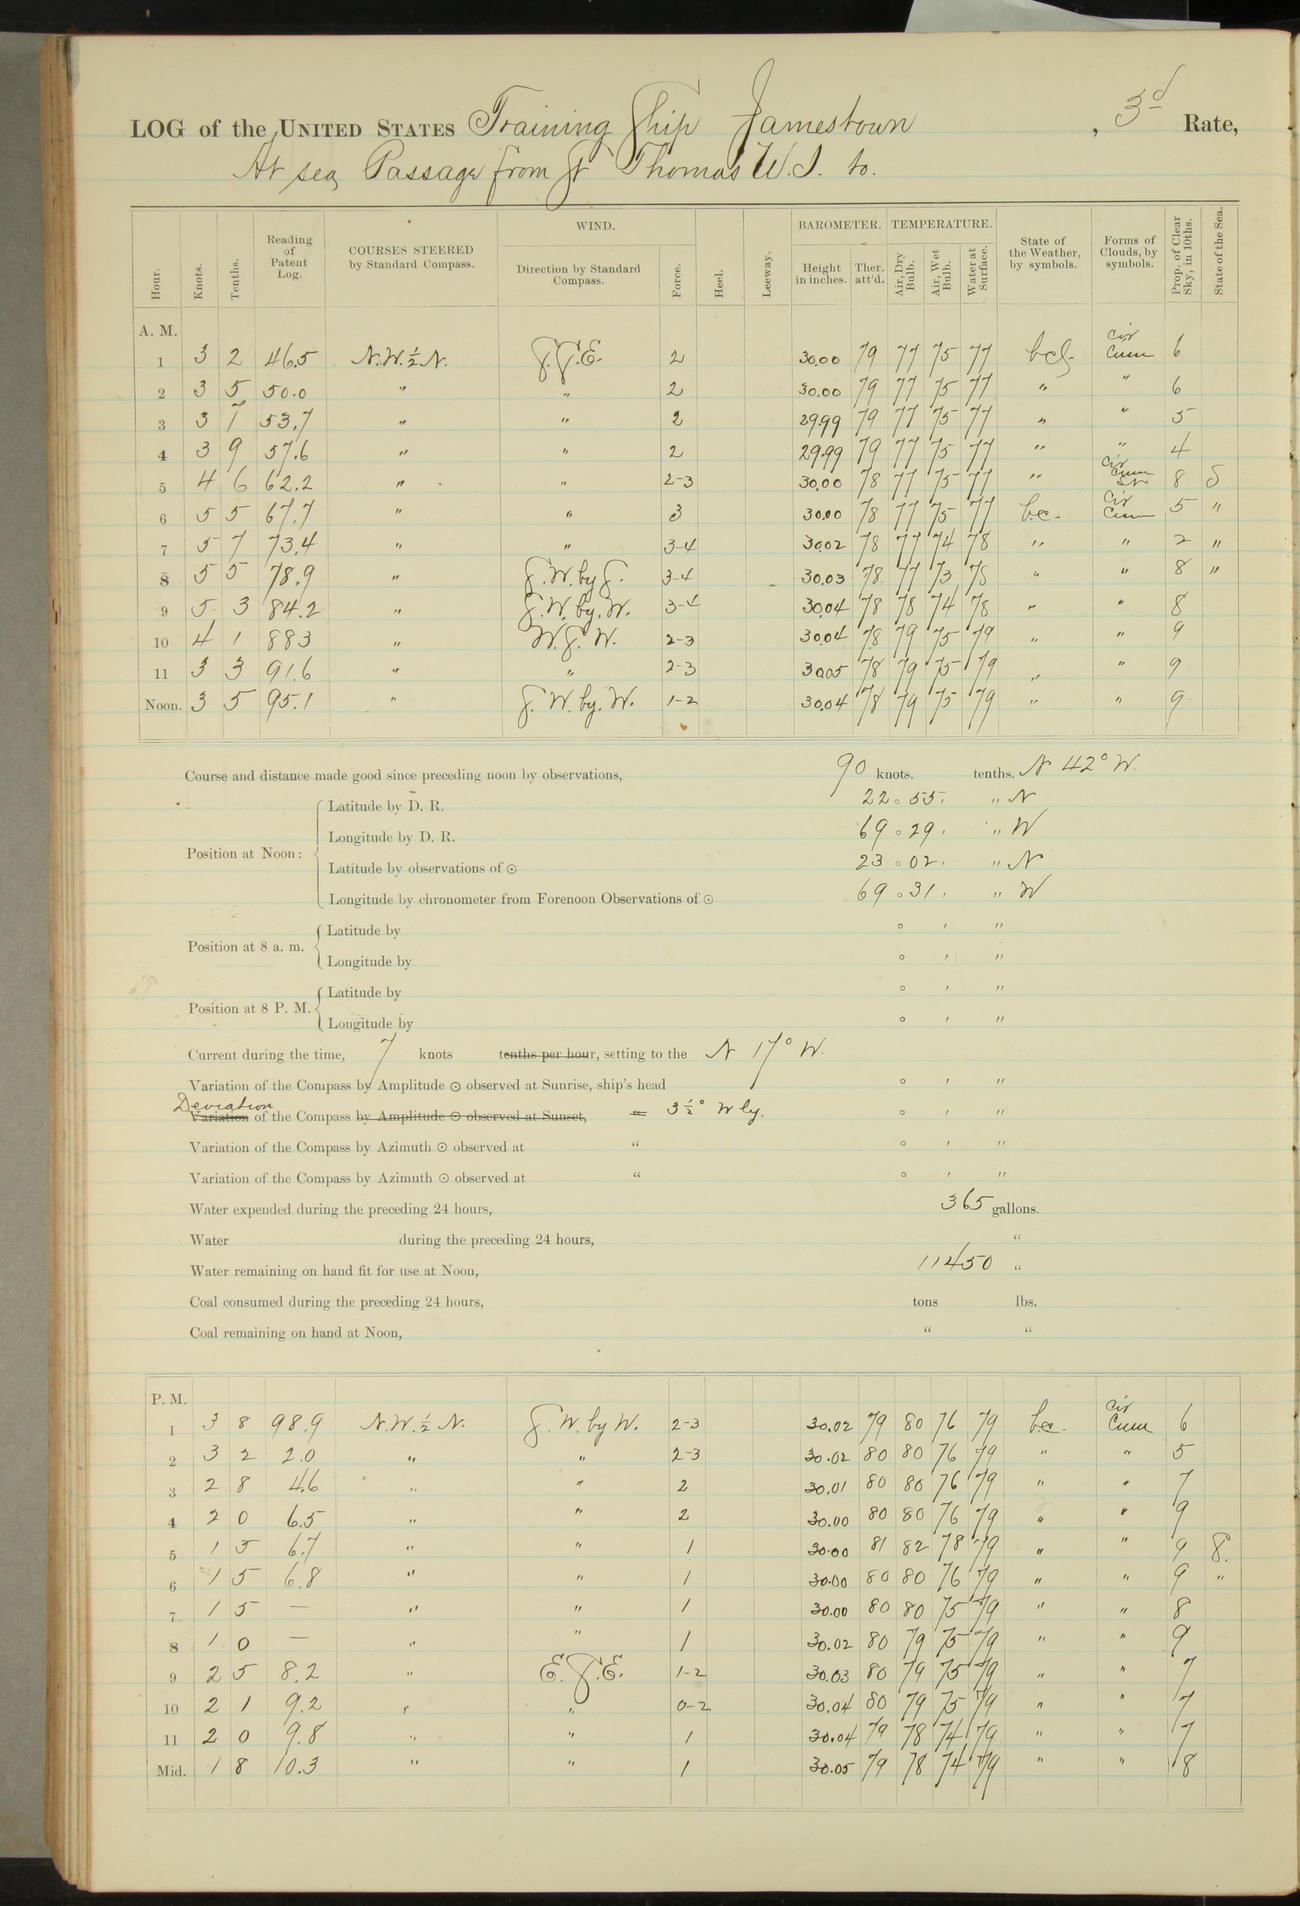 LOG of the UNITED STATES Training Ship Jamestown , 3d Rate,
At sea, Passage from St Thomas W.I. to.
Hour. Knots. Tenths. Reading of Patent Log. COURSES STEERED by Standard Compass. WIND. Direction by Standard Compass. Force. Heel. Leeway. BAROMETER. Height in inches. Ther. att'd. TEMPERATURE. Air, Dry Bulb. Air, Wet Bulb. Water at Surface. State of the Weather, by symbols. Forms of Clouds, by symbols. Prop. of Clear Sky, in 10ths. State of the Sea.
A. M.
1 3 2 46.5 N.W. ½ N. S.S.E. 2 30.00 79 77 75 77 bcq. cir cum 6
2 3 5 50.0 " " 2 30.00 79 77 75 77 " " 6
3 3 7 53.7 " " 2 29.99 79 77 75 77 " " 5
4 3 9 57.6 " " 2 29.99 79 77 75 77 " " 4
5 4 6 62.2 " " 2-3 30.00 78 77 75 77 " cir cum str 8 S
6 5 5 67.7 " " 3 30.00 78 77 75 77 b.c. cir cum 5 "
7 5 7 73.4 " " 3-4 30.02 78 77 74 78 " " 2 "
8 5 5 78.9 " S.W. by S. 3-4 30.03 78 77 73 78 " " 8 "
9 5 3 84.2 " S.W. by. W. 3-4 30.04 78 78 74 78 " " 8
10 4 1 883 " W.S.W. 2-3 30.04 78 79 75 79 " " 9
11 3 3 91.6 " " 2-3 30.05 78 79 75 79 " " 9
Noon. 3 5 95.1 " S. W. by. W. 1-2 30.04 78 79 75 79 " " 9
Course and distance made good since preceding noon by observations, 90 knots. tenths. N 42° W.
Latitude by D. R. 22 ° 55 ' " N
Longitude by D. R. 69 ° 29 ' " W
Position at Noon:
Latitude by observations of ☉ 23 ° 02 ' " N
Longitude by chronometer from Forenoon Observations of ☉ 69 ° 31 ' " W
Latitude by ° ' "
Position at 8 a. m.
Longitude by ° ' "
Latitude by ° ' "
Position at 8 P. M.
Longitude by ° ' "
Current during the time, 7 knots tenths per hour, setting to the N 17° W.
Variation of the Compass by Amplitude ☉ observed at Sunrise, ship's head ° ' "
Deviation
Variation of the Compass by Amplitude ☉ observed at Sunset, = 3½° Wly. ° ' "
Variation of the Compass by Azimuth ☉ observed at " ° ' "
Variation of the Compass by Azimuth ☉ observed at " ° ' "
Water expended during the preceding 24 hours, 365 gallons.
Water during the preceding 24 hours, "
Water remaining on hand fit for use at Noon, 11450 "
Coal consumed during the preceding 24 hours, tons lbs.
Coal remaining on hand at Noon, " "
P. M.
1 3 8 98.9 N.W. ½ N. S. W. by W. 2-3 30.02 79 80 76 79 b.c. cir cum 6
2 3 2 2.0 " " 2-3 30.02 80 80 76 79 " " 5
3 2 8 4.6 " " 2 30.01 80 80 76 79 " " 7
4 2 0 6.5 " " 2 30.00 80 80 76 79 " " 9
5 1 5 6.7 " " 1 30.00 81 82 78 79 " " 9 S.
6 1 5 6.8 " " 1 30.00 80 80 76 79 " " 9 "
7 1 5 — " " 1 30.00 80 80 75 79 " " 8
8 1 0 — " " 1 30.02 80 79 75 79 " " 9
9 2 5 8.2 " E.S.E. 1-2 30.03 80 79 75 79 " " 7
10 2 1 9.2 " " 0-2 30.04 80 79 75 79 " " 7
11 2 0 9.8 " " 1 30.04 79 78 74 79 " " 7
Mid. 1 8 10.3 " " 1 30.05 79 78 74 79 " " 8